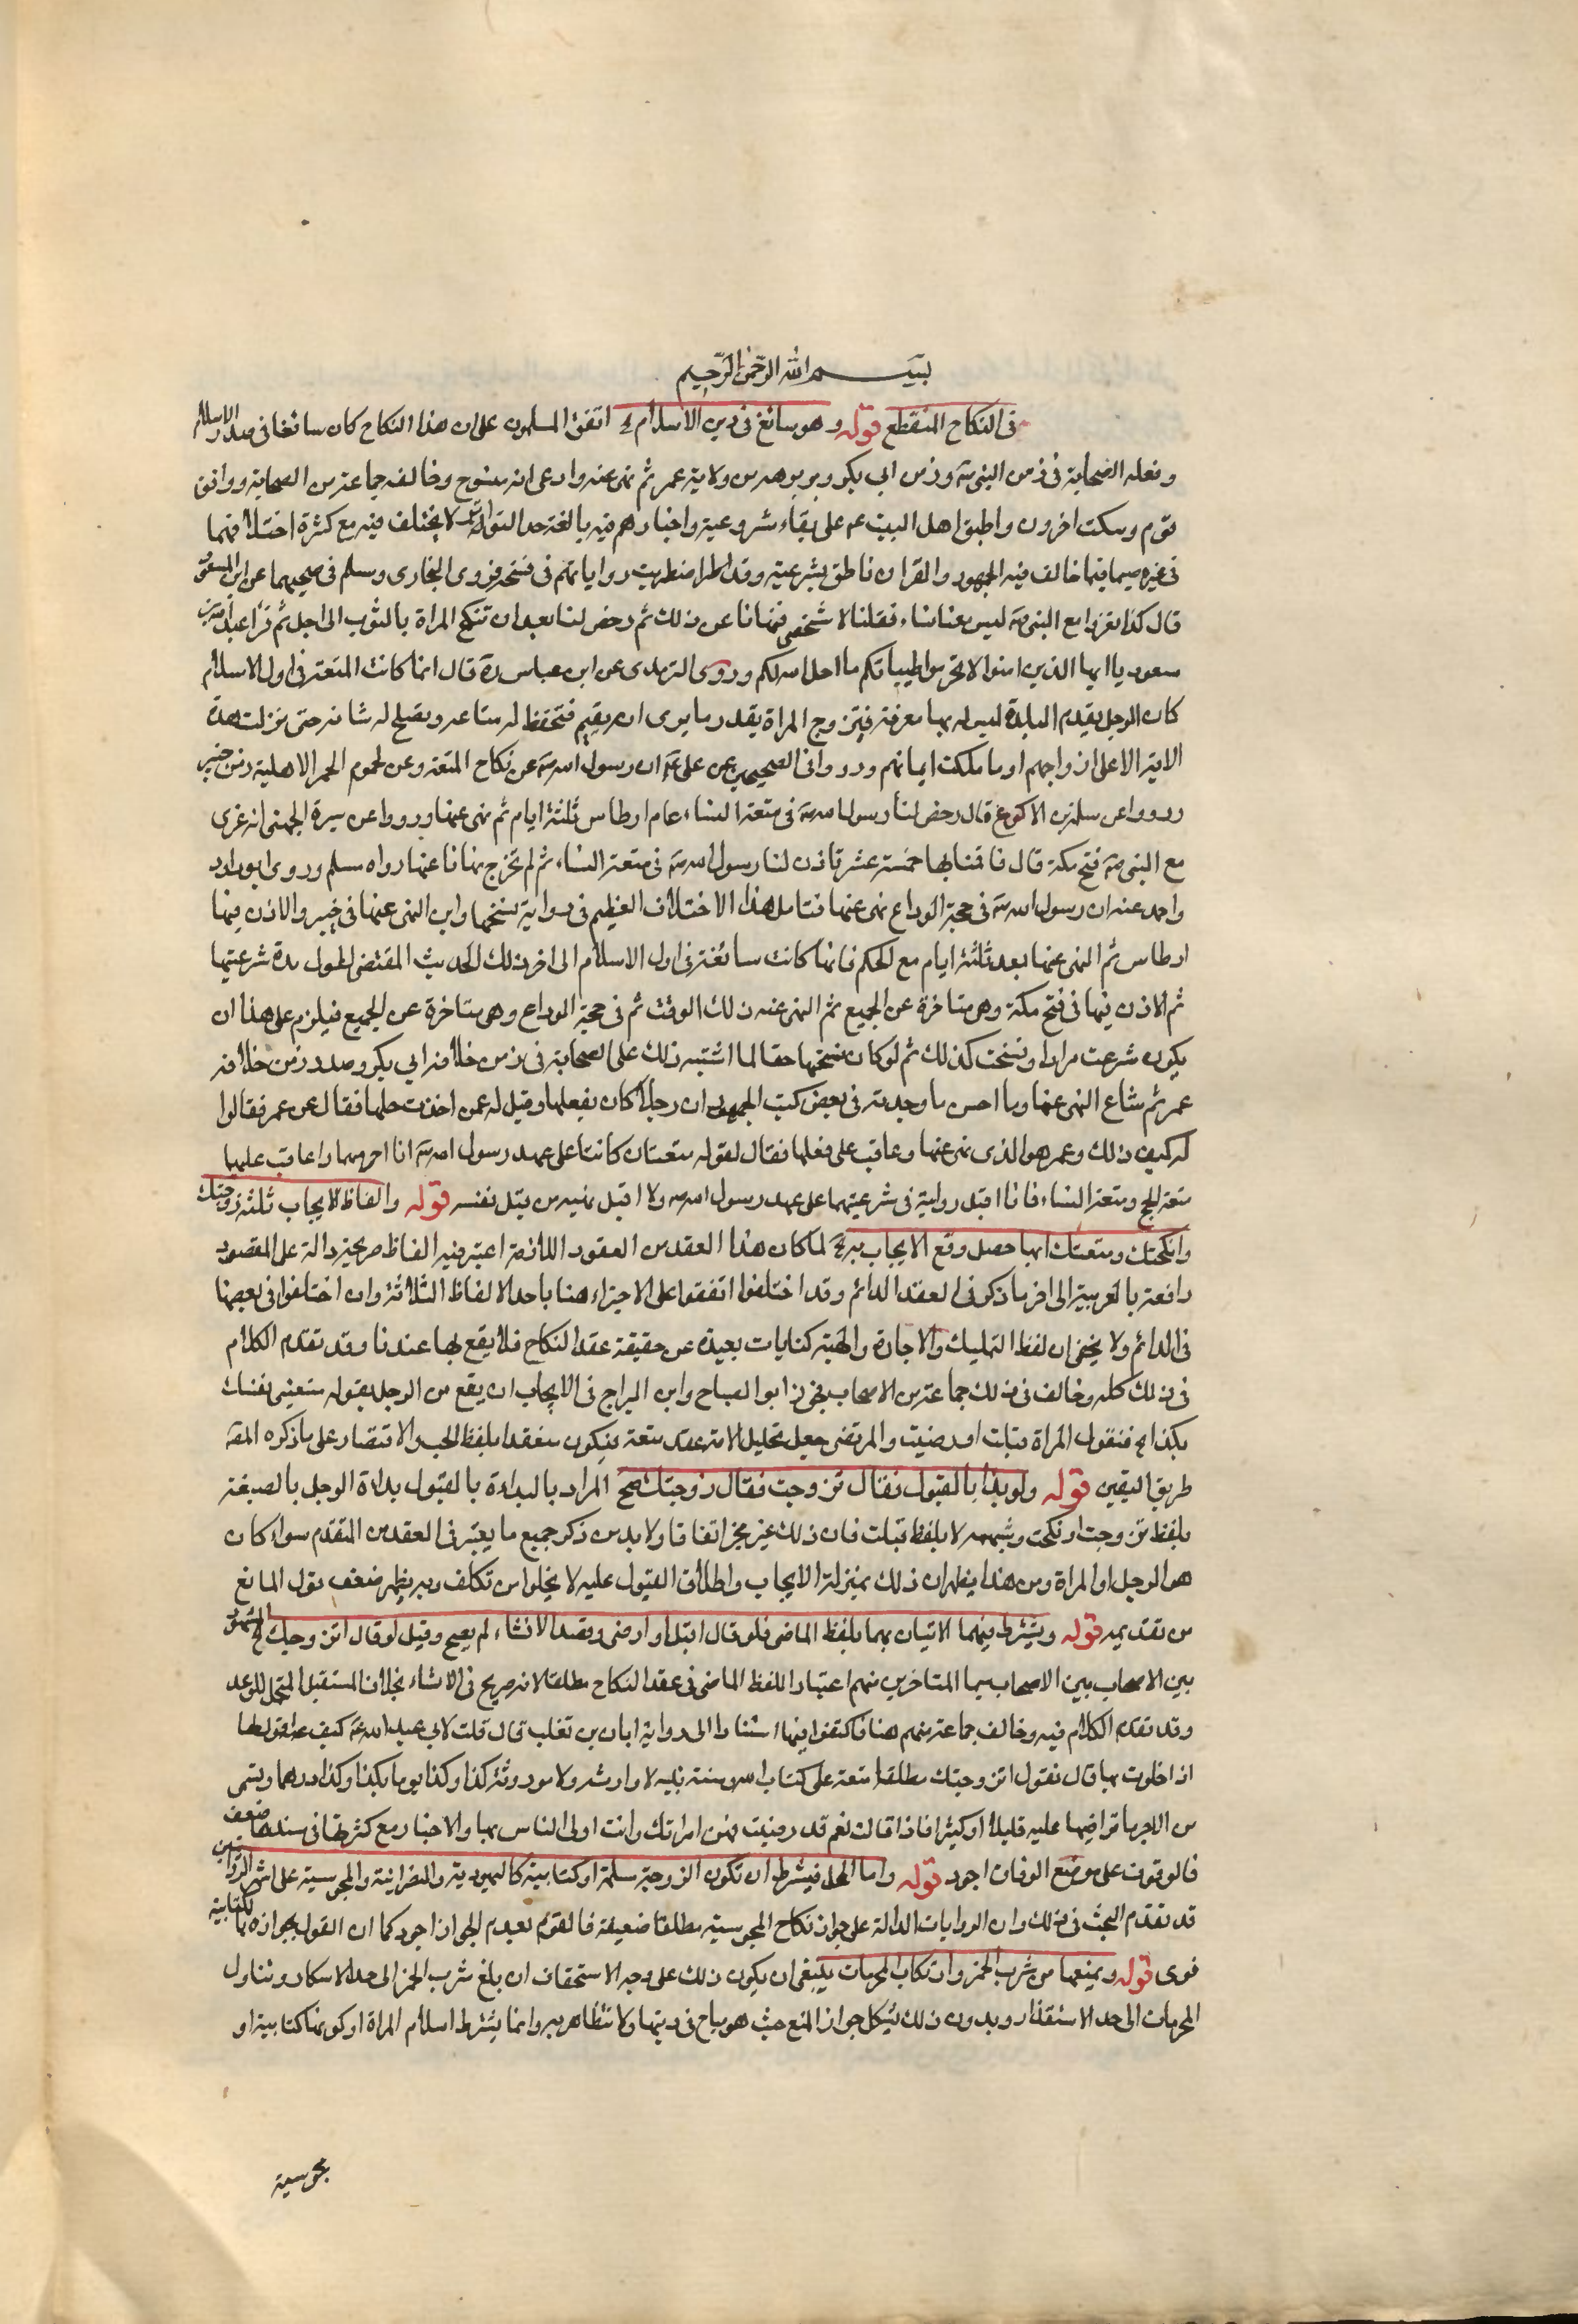 بسم الله الرحمن الرحيم
في النكاح المنقطع قوله وهو سائغ في دين الاسلام اه اتفق المسلمون على ان هذا النكاح كان سائغا في صدر الاسلام
وفعله الصحابة في زمن النبي ص وزمن ابي بكر وبرهة من ولاية عمر ثم نهى عنه وادعى انه منسوخ وخالفه جماعة من الصحابة ووافق
قوم وسكت اخرون واطبق اهل البيت ع على بقاء شروعيته واخبارهم فيه بالغة حد التواتر لا يختلف فيه مع كثرة اختلافها
في غيره سيما فيما خالف فيه الجمهور والقران ناطق بشرعيته وقد اضطربت رواياتهم في نسخه فروى البخارى ومسلم في صحيحهما عن ابن مسعود
قال كنا نغزوا مع النبي ص ليس معنا نساء فقلنا الا نستخصى فنهانا عن ذلك ثم رخص لنا بعد ان تنكح المراة بالثوب الى اجل ثم قرا عبد الله بن
مسعود يا ايها الذين امنوا لا تحرموا طيبات ما احل الله لكم وروى الترمذى عن ابن عباس رة قال انما كانت المتعة في اول الاسلام
كان الرجل يقدم البلدة ليس له بها معرفة فيتزوج المراة بقدر ما يرى انه يقيم فتحفظ له متاعه وتصلح له شانه حتى نزلت هذه
الاية الا على ازواجهم او ما ملكت ايمانهم ورووا في الصحيحين عن على ع ان رسول الله ص عن نكاح المتعة وعن لحوم الحمر الاهلية زمن خيبر
ورووا عن سلمة بن الاكوع قال رخص لنا رسول الله ص في متعة النساء عام اوطاس ثلثة ايام ثم نهى عنها ورووا عن سبرة الجهنى انه غزى
مع النبي ص فتح مكة قال فاقمنا بها خمسة عشر فاذن لنا رسول الله ص في متعة النساء ثم لم نخرج نهانا عنها رواه مسلم وروى ابو داود
واحمد عنه ان رسول الله ص في حجة الوداع نهى عنها فتامل هذا الاختلاف العظيم في رواية نسخها واين النهى عنها في خيبر والاذن فيها
اوطاس ثم النهى عنها بعد ثلثة ايام مع الحكم فانها كانت سائغة في اول الاسلام الى اخر ذلك الحديث المقتضى لطول مدة شرعيتها
ثم الاذن فيها في فتح مكة وهى متاخرة عن الجميع ثم النهى عنه ذلك الوقت ثم في حجة الوداع وهى متاخرة عن الجميع فيلزم على هذا ان
يكون شرعت مرارا ونسخت كذلك ثم لو كان نسخها حقا لما اشتبه ذلك على الصحابة في زمن خلافة ابي بكر وصدر من خلافة
عمر ثم شاع النهى عنها وما احسن ما وجدته في بعض كتب الجمهور ان رجلا كان يفعلها وقيل له عمن اخذت حلها فقال عن عمر فقالوا
له كيف ذلك وعمر هو الذى نهى عنها وعاقب على فعلها فقال لقوله متعتان كانتا على عهد رسول الله ص انا احرمهما واعاقب عليهما
متعة الحج ومتعة النساء فانا اقبل روايته في شرعيتهما على عهد رسول الله ص ولا اقبل نهيه من قبل نفسه قوله والفاظ الايجاب ثلثة زوجتك
وانكحتك ومتعتك ايها حصل وقع الايجاب به اه لما كان هذا العقد من العقود اللازمة اعتبر فيه الفاظ صريحة دالة على المقصود
واقعة بالعربية الى اخر ما ذكر في العقد الدائم وقد اختلفوا اتفقوا على الاجتزاء هنا باحد الالفاظ الثلاثة وان اختلفوا في بعضها
في الدائم ولا يخفى ان لفظ التمليك والاجارة والهبة كنايات بعيدة عن حقيقة عقد النكاح فلا يقع بها عندنا وقد تقدم الكلام
في ذلك كله وخالف في ذلك جماعة من الاصحاب فجوز ابو الصباح وابن البراج في الايجاب ان يقع من الرجل بقوله متعينى نفسك
بكذا اه فتقول المراة قبلت او رضيت والمرتضى جعل تحليل الامة عقد متعة فيكون منعقدا بلفظ الحب والاقتصار على ما ذكره المص
طريق اليقين قوله ولو بدا بالقبول فقال تزوجت فقال زوجتك صح المراد بالبداءة بالقبول بداءة الرجل بالصيغة
بلفظ تزوجت او نكحت وشبهه لا بلفظ قبلت فان ذلك غير مجز اتفاقا ولا بد من ذكر جميع ما يعتبر في العقد من المتقدم سواء كان
هو الرجل او المراة ومن هذا يظهر ان ذلك بمنزلة الايجاب واطلاق القبول عليه لا يخلوا من تكلف وبه يظهر ضعف قول المانع
من تقديمه قوله ويشترط فيهما الاتيان بهما بلفظ الماضى فلو قال اقبل او ارضى وقصد الانشاء لم يصح وقيل لو قال اتزوجك اه المشهور
بين الاصحاب بين الاصحاب سيما المتاخرين منهم اعتبار اللفظ الماضى في عقد النكاح مطلقا لانه صريح في الانشاء بخلاف المستقبل المحتمل للوعد
وقد تقدم الكلام فيه وخالف جماعة منهم هنا فاكتفوا فيها استنادا الى رواية ابان بن تغلب قال قلت لابى عبد الله ع كيف اقول لها
اذا خلوت بها قال تقول اتزوجتك مطلقا متعة على كتاب الله وسنة نبيه لا وارثه ولا موروثة كذا وكذا يوما بكذا وكذا درهما وتسمى
من الاجر ما تراضيتما عليه قليلا او كثيرا فاذا قالت نعم قد رضيت فهى امراتك وانت اولى الناس بها والاخبار مع كثرتها في سندها ضعف
فالوقوف على موضع الوفاق اجود قوله واما المحل فيشترط ان تكون الزوجة مسلمة او كتابية كاليهودية والنصرانية والمجوسية على اشهر الروايتين
قد تقدم البحث في ذلك وان الروايات الدالة على جواز نكاح المجوسية مطلقا ضعيفة فالقول بعدم الجواز اجود كما ان القول بجوازه بالكتابية
قوى قوله ويمنعها من شرب الخمر وارتكاب المحرمات ينبغى ان يكون ذلك على وجه الاستحقاق ان بلغ شرب الخمر الى حد الاسكار وتناول
المحرمات الى حد الاستقذار وبدون ذلك يشكل جواز المنع حيث هو مباح في دينها ولا تتظاهر به وانما يشترط اسلام المراة او كونها كتابية او
مجوسية